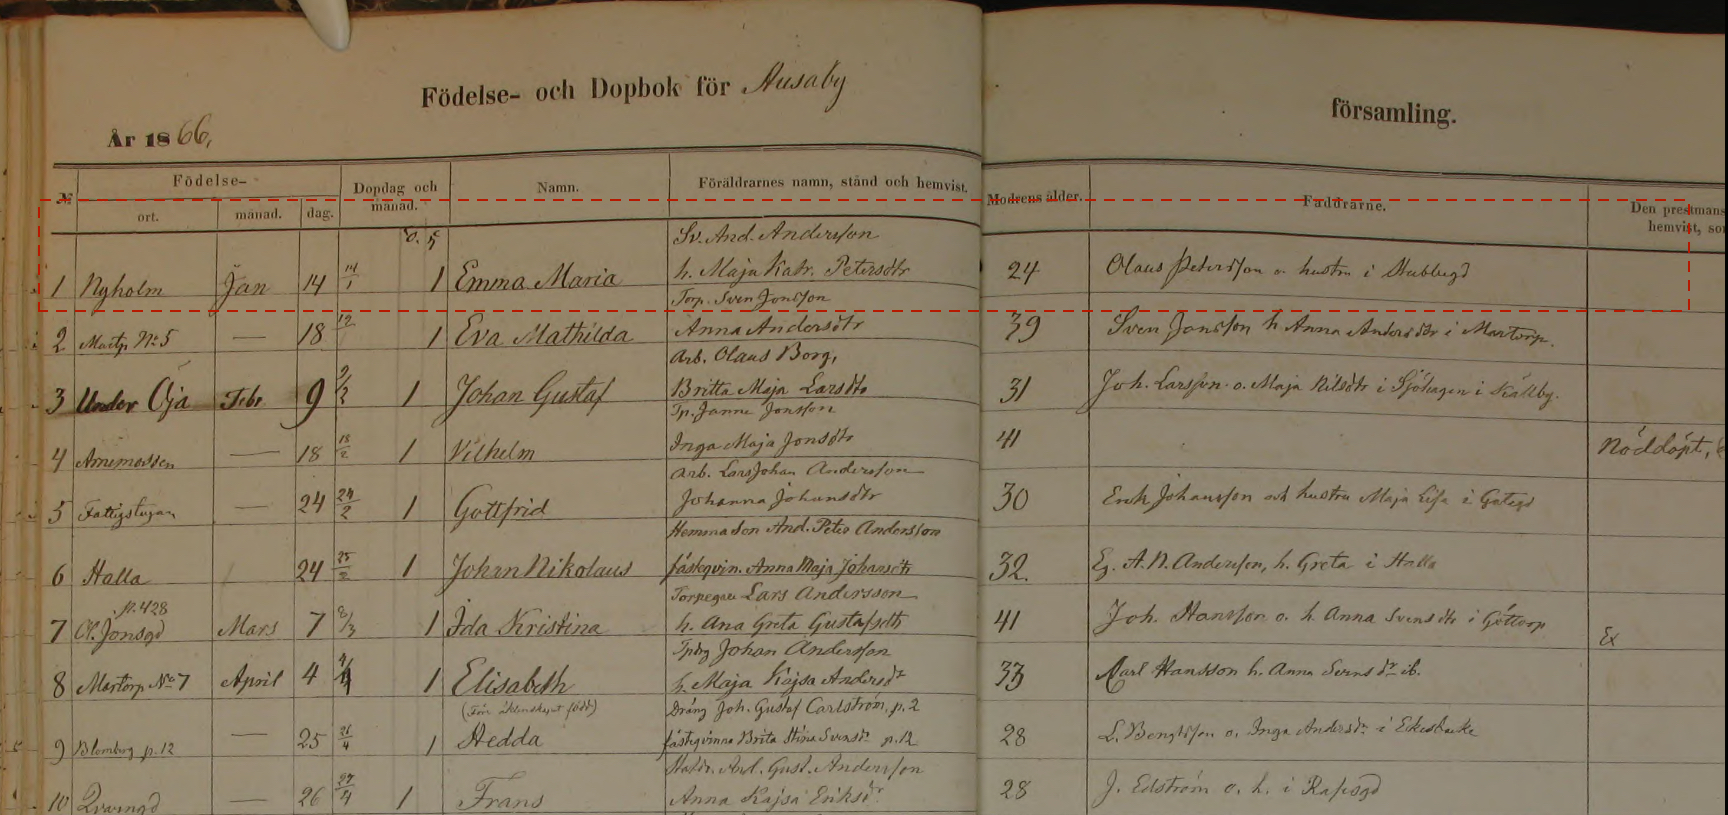 Födelse- och Dopbok för Husaby församling.
År 1866.
№ Födelse- ort. månad. dag. Dopdag och månad. Namn. Föräldrarnes namn, stånd och hemvist. Modrens ålder. Faddrarne. Den prestmans hemvist, so
Sv. And. Andersson
1 Nyholm Jan 14 14/1 1 Emma Maria h. Maja Katr. Petersdtr 24 Olaus Petersson o. hustru i
Torp. Sven Jonsson
2 Martp. No 5 — 18 1 Eva Mathilda Anna Andersdtr 39 Sven Jonsson h Anna Andersdtr i Martorp.
Arb. Olaus Borg,
3 Under Öja Febr 9 1 Johan Gustaf Britta Maja Larsdtr 31 Joh. Larsson o. Maja Nilsdtr i Sjöhagen i Källby.
Tp. Janne Jonsson
4 — 18 18/2 1 Vilhelm Inga Maja Jonsdtr 41 Nöddöpt,
Arb. Lars Johan Andersson
5 Fattigstugan — 24 24/2 1 Gottfrid Johanna Johansdtr 30 Erik Johansson och hustru Maja Lisa i
Hemmason And. Peter Andersson
6 Halla 24 25/2 1 Johan Nikolaus fästeqvin. Anna Maja Johansdtr 32. Eg. A. N. Andersson, h. Greta i Halla
p. 428 Torpegare Lars Andersson
7 Ol. Jonsgd Mars 7 8/3 1 Ida Kristina h. Ana Greta Gustafsdtr 41 Joh. Hansson o. h Anna Svensdtr i Göttorp Ex
Johan Andersson
8 Martorp No 7 April 4 1 Elisabeth h. Maja Kajsa Andersdr 33 Karl Hansson h. Anna Svensdr ib.
(Förr äktenskapet född) Dräng Joh. Gustaf Carlström, p. 2
9 Blomberg p. 12 — 25 26/4 1 Hedda fästeqvinna Brita Stina Svensdr p. 12 28 L. Bengtsson o. Inga Andersdr i Ekesbacke
Gust. Andersson
10 — 26 27/4 1 Frans Anna Kajsa Eriksdr 28 J. Edström o. h. i